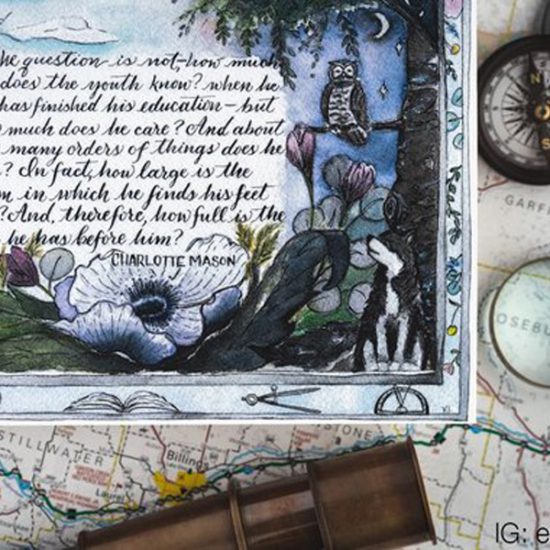 he question is not, how much
does the youth know? when he
has finished his education – but
much does he care? And about
many orders of things does he
? In fact, how large is the
in which he finds his feet
? And, therefore, how full is the
he has before him?
CHARLOTTE MASON
N
S
GARF
OSEBU
STILLWATER
STONE
Billings
Laurel
IG: e